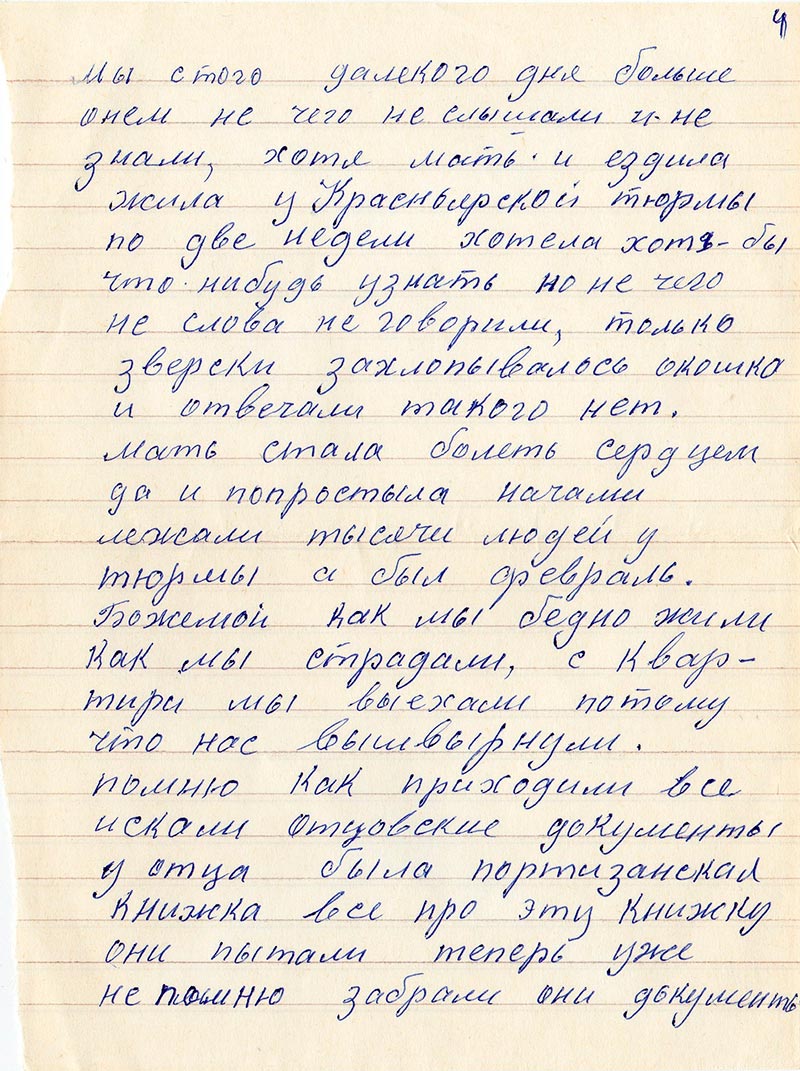 4
мы с того далекого дня больше
онем не чего не слышали и не
знали, хотя мать и ездила
жила у Красноярской тюрмы
по две недели хотела хотя-бы
что-нибудь узнать но не чего
не слова не говорили, только
зверски захлопывалось окошка
и отвечали такого нет.
мать стала болеть сердцем
да и попростыла начами
лежали тысячи людей у
тюрмы а был февраль.
Божемой как мы бедно жили
Как мы страдали, с квар-
тири мы выехали потому
что нас вышвырнули.
помню как приходили все
искали отцовские документы
у отца была портизанская
книжка все про эту книжку
они пытали теперь уже
не помню забрали они документы